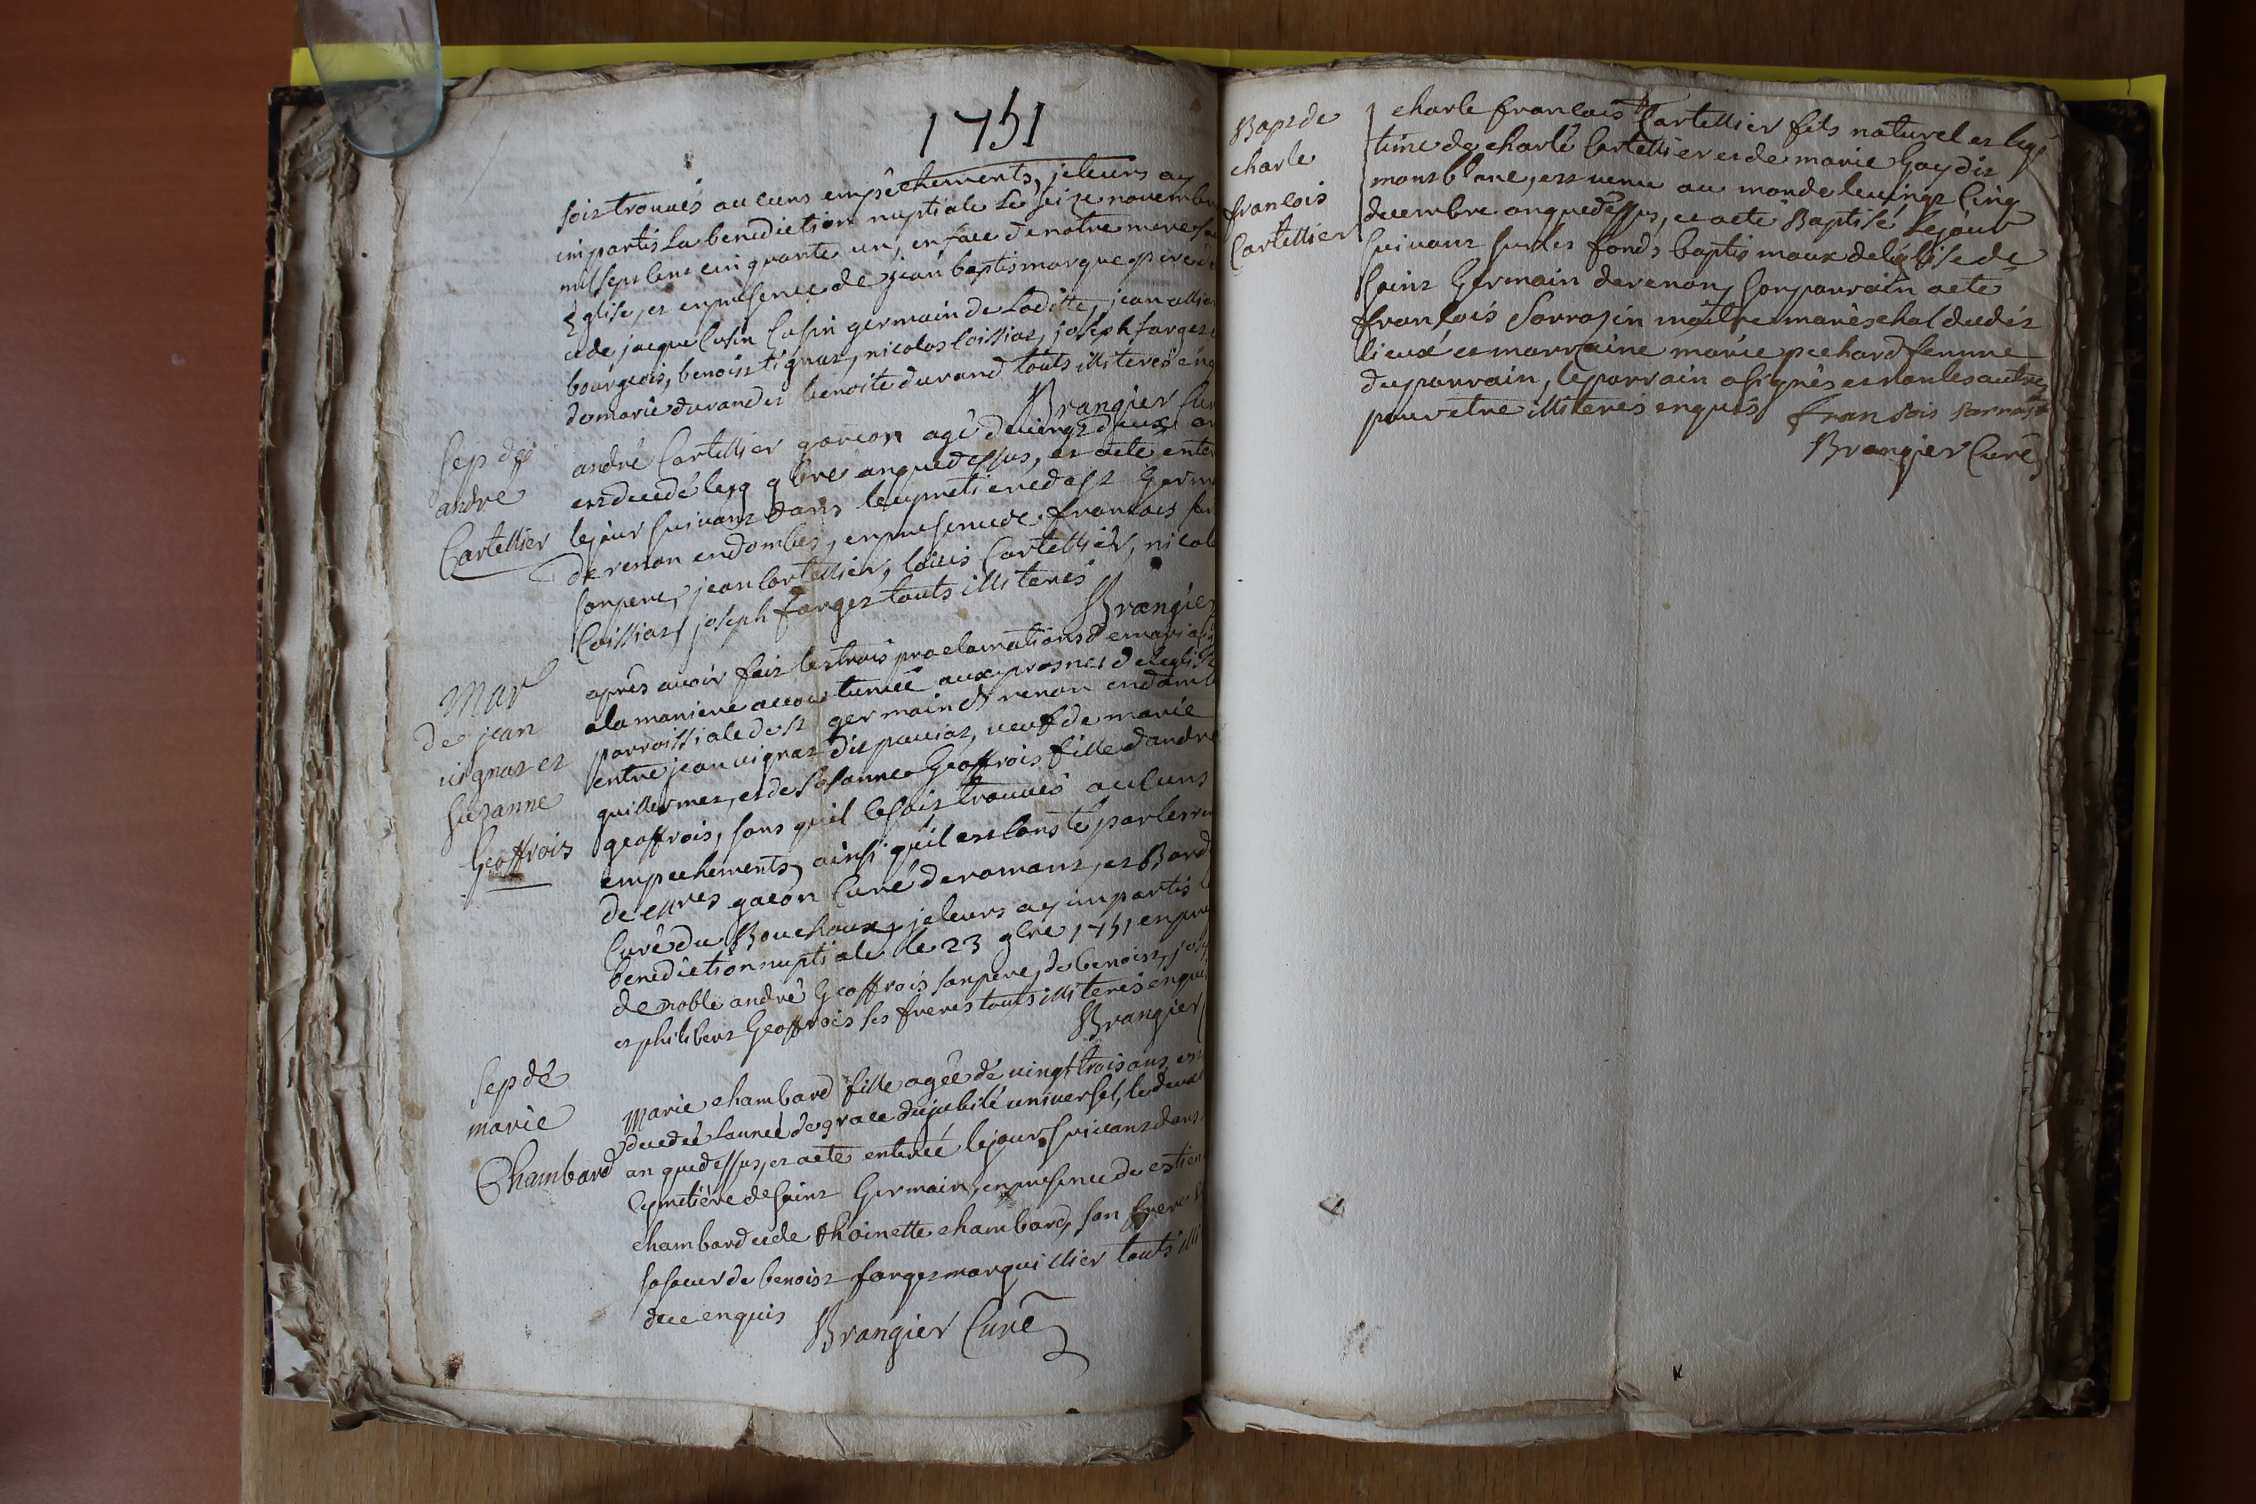 1751
soit trouvés aucuns empêchements, je leurs ay
impartis la benediction nuptiale le seize novembre
mil sept cent cinquante un, en face de notre mere ste
Eglise, et en presence de jean baptis marque
et de jacque Cusin Cosin germain de Laditte, jean
bourgeois, benoist tignat, nicolas Coissiat, joseph farget
marie durand et benoite durand touts illiterés enq
Brangier Cur
Sep de
andre
Cartellier
andré Cartellier garcon agé de vingt deux an
est decedé le 9 9bre an que dessus, et a eté enter
le jour suivant dans le cymetiere de st Germ
de renon en dombes, en presence de francois
son pere, jean Cartellier, louis Cartellier, nicol
Coissiat, joseph farget touts illiterés
Brangier
Mar
de jean
vignat et
suzanne
Geoffrois
après avoir fait les trois proclamations de mariage
a la maniere accoutumée aux prosnes de leglise
parroissiale de st germain de renon en domb
entre jean vignat dit pauciat, veuf de marie
guillermet, et de Susanne Geoffrois fille d'andre
geoffrois, sans qu'il se soit trouvés aucuns
empechements, ainsi qu'il est consté par les
de mres gacon Curé de romans, et Bard
Curé du Bouchoux, je leurs ay impartis l
benediction nuptiale le 23 9bre 1751 en pre
de noble andré Geoffrois son pere, de benoist, jos
et philibert Geoffrois ses freres touts illiterés enqui
Brangier
Sep de
marie
Chambard
Marie chambard fille agée de vingt trois ans, est
decedée l'année de grace du jubilé universel, le deux
an que dessus, et a eté enterée le jour suivant dans
Cymetière de saint Germain, en presence de estien
chambard et de thoinette chambard, son frere
sa soeur de benoist farget marguillier touts illi
de ce enquis
Brangier Curé
Bapt de
charle
francois
Cartellier
charle francois Cartellier fils naturel et legi
time de charle Cartellier et de marie Gay dit
mont blanc, est venu au monde le vingt Cinq
decembre an que dessus, et a eté Baptisé Le jour
suivant sur les fonds baptismaux de l'églisede
saint Germain de renon, son parrain a eté
francois Sarrasin maitre marèschal dudit
lieux et marraine marie pechard femme
du parrain, le parrain a signés et non les autres
pour etre illiterés enquis fransois sarrasin
Brangier Curé